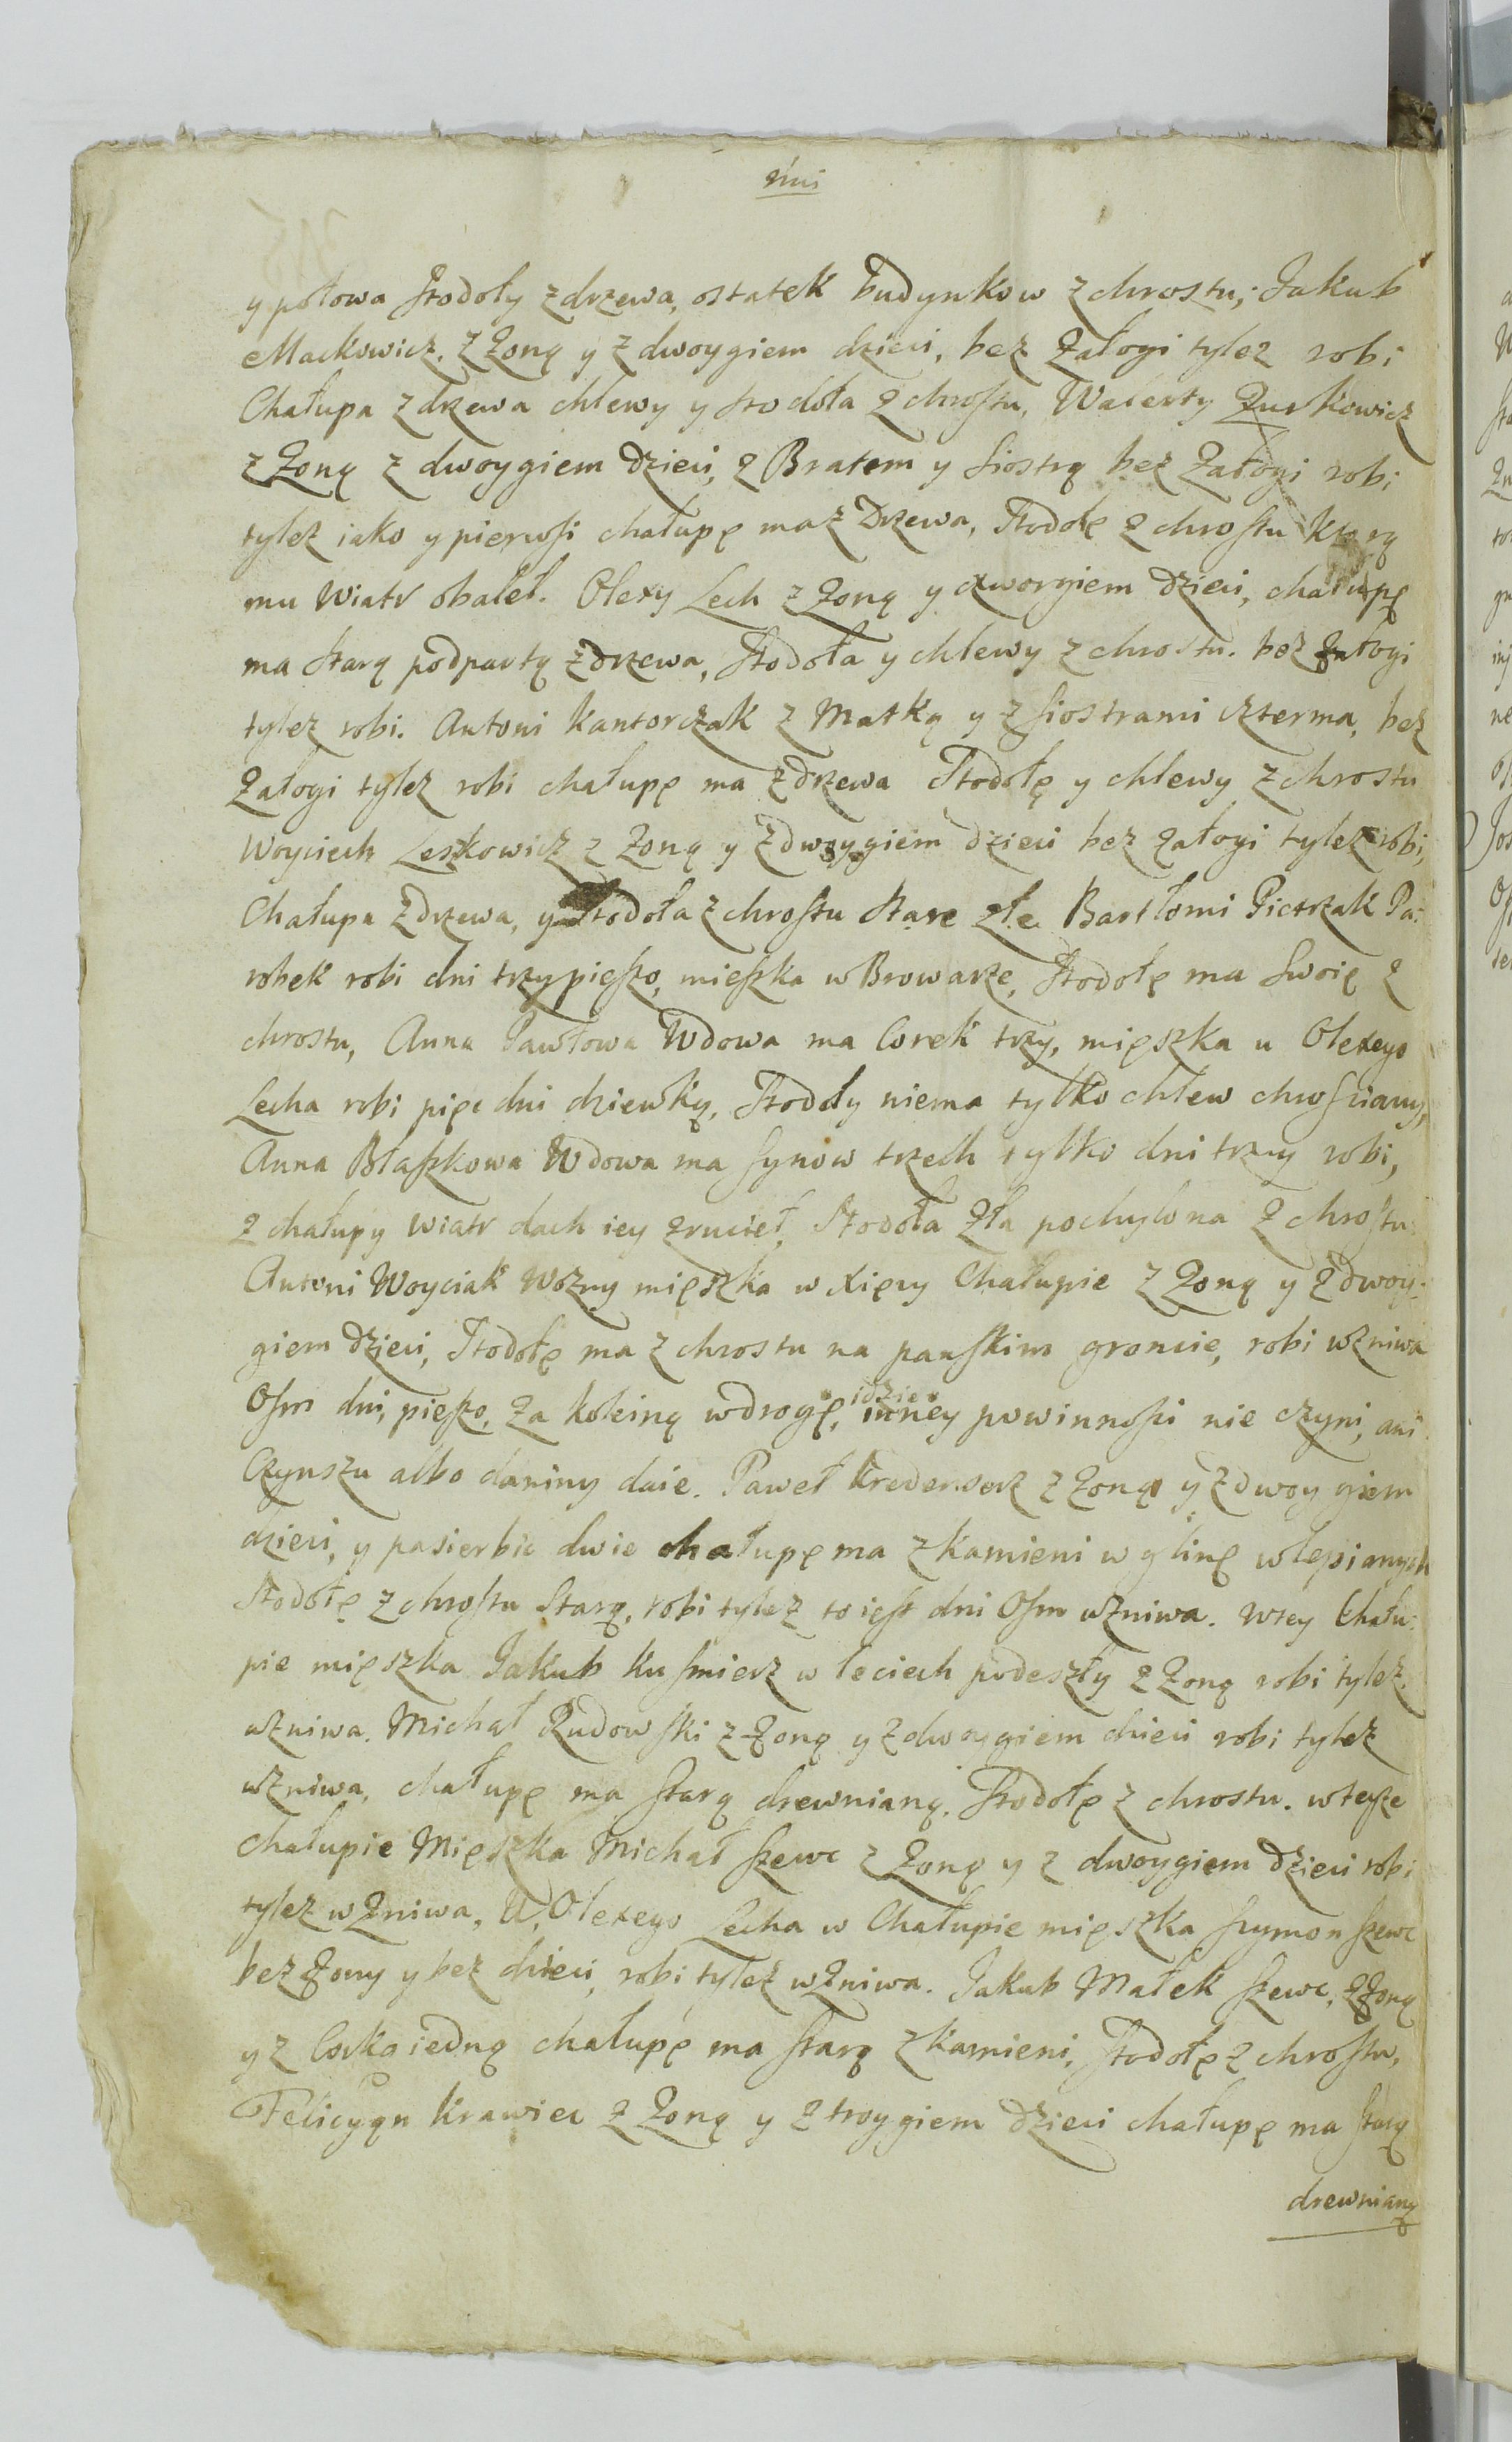 y połowa stodoły z drzewa, ostatek budynkow z chrostu; Jakub
Mackowicz. z Zoną y z dwoygiem dzieci, bez Załogi tylez robi
Chałupa z drzewa chlewy y stodoła z chrostu, Walenty Zurkowicz
z Zoną z dwoygiem dzieci, z Bratem y siostrą bez Załogi robi
tylez iako y pierwsi chałupę ma z Drzewa, stodołę z chrostu ktorą
mu wiatr obaleł. Olexy Lech z Zoną y dworgiem dzieci, chałupę
ma starą podpartą z drzewa, stodoła y chlewy z chrostu. bez załogi
tylez robi. Antoni Kantorczak z Matką y z siostrami czterma, bez
Załogi tylez robi chałupę ma z drzewa stodołę y chlewy z chrostu
Woyciech Leszkowicz z Zoną y z dwoygiem dzieci bez załogi tylez robi,
Chałupa z drzewa, y stodoła z chrostu stare złe. Bartłomi Pietrzak Pa:
robek robi dni trzy pieszo, mieszka w Browarze, stodołę ma swoię z
chrostu, Anna Pawłowa Wdowa ma Corek trzy, mięszka u Olexego
Lecha robi pięc dni dziewką, stodoły niema tylko chlew chrosciany,
Anna Błaszkowa Wdowa ma synow trzech tylko dni trzy robi,
z chałupy wiatr dach iey zruciеł, stodoła zła pochylona z chrostu.
Antoni Woyciak Wozny mięszka w Xięzy Chałupie z Zoną y z dwoy:
giem dzieci, stodołę ma z chrostu na panskim groncie, robi w zniwa
Osm dni, pieszo, za koleiną w drogę, idzie inney powinnosci nie czyni, ani
Czynszu albo daniny daie. Paweł Kredenserz z Zoną y z dwoygiem
dzieci, y pasierbic dwie chałupę ma z kamieni w glinę wlepianych
stodołę z chrostu starą, robi tylez to iest dni Osm w zniwa. w tey Chału:
pie mięszka Jakub Kusmierz w leciech podeszły z Zoną robi tylez.
w zniwa. Michał Rudowski z Zoną y z dwoygiem dzieci robi tylez
w zniwa, chałupę ma starą drewnianą, stodołę z chrostu. w teyze
chałupie Mięszka Michał szewc z Zoną y z dwoygiem dzieci robi
tylez w Zniwa, U Olexego Lecha w Chałupie mięszka szymon szewc
bez Zony y bez dzieci, robi tylez w Zniwa. Jakub Małek szewc, z Zoną
y z Corką iedną chałupę ma starą z kamieni, stodołę z chrostu,
Felicyąn Krawiec z Zoną y z troygiem dzieci chałupę ma starą
drewnianą